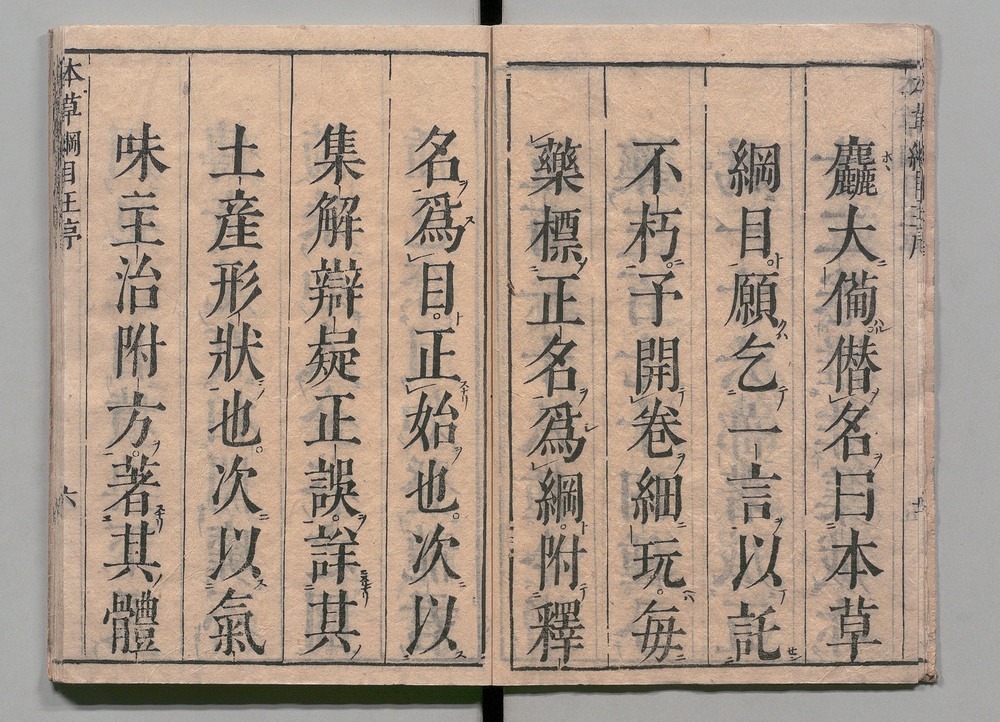 麤大備僣名曰本草
綱目願乞一言以託
不朽予開卷細玩毎
藥標正名爲綱附釋
名爲目正始也次以
集解辯疑正誤詳其
土産形狀也次以氣
味主治附方著其體
本草綱目王序
六